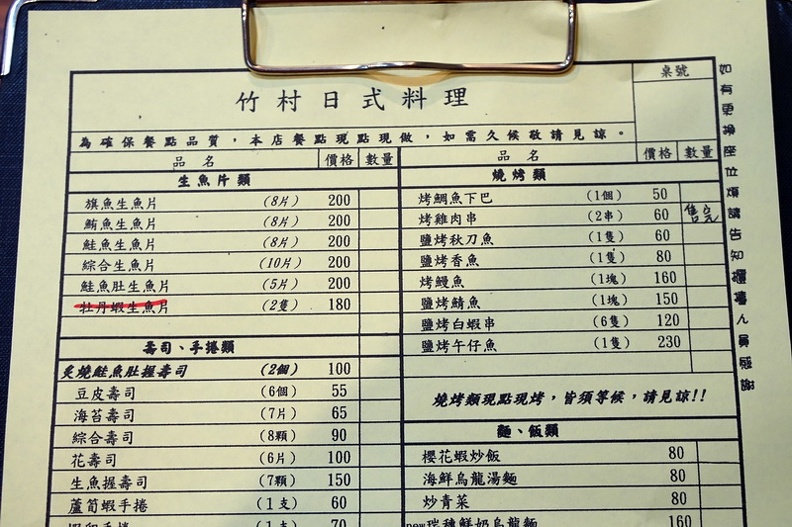 竹村日式料理
桌號
為確保餐點品質，本店餐點現點現做，如需久候敬請見諒。
品名 價格 數量
生魚片類
旗魚生魚片 (8片) 200
鮪魚生魚片 (8片) 200
鮭魚生魚片 (8片) 200
綜合生魚片 (10片) 200
鮭魚肚生魚片 (5片) 200
牡丹蝦生魚片 (2隻) 180
壽司、手捲類
炙燒鮭魚肚握壽司 (2個) 100
豆皮壽司 (6個) 55
海苔壽司 (7片) 65
綜合壽司 (8顆) 90
花壽司 (6片) 100
生魚握壽司 (7顆) 150
蘆筍蝦手捲 (1支) 60
手捲 (1支) 70
品名 價格 數量
燒烤類
烤鯛魚下巴 (1個) 50
烤雞肉串 (2串) 60 售完
鹽烤秋刀魚 (1隻) 60
鹽烤香魚 (1隻) 80
烤鰻魚 (1塊) 160
鹽烤鯖魚 (1塊) 150
鹽烤白蝦串 (6隻) 120
鹽烤午仔魚 (1隻) 230
燒烤類現點現烤，皆須等候，請見諒!!
麵、飯類
櫻花蝦炒飯 80
海鮮烏龍湯麵 80
炒青菜 80
new瑞穗鮮奶烏龍麵 160
如有更換座位煩請告知櫃檯人員感謝